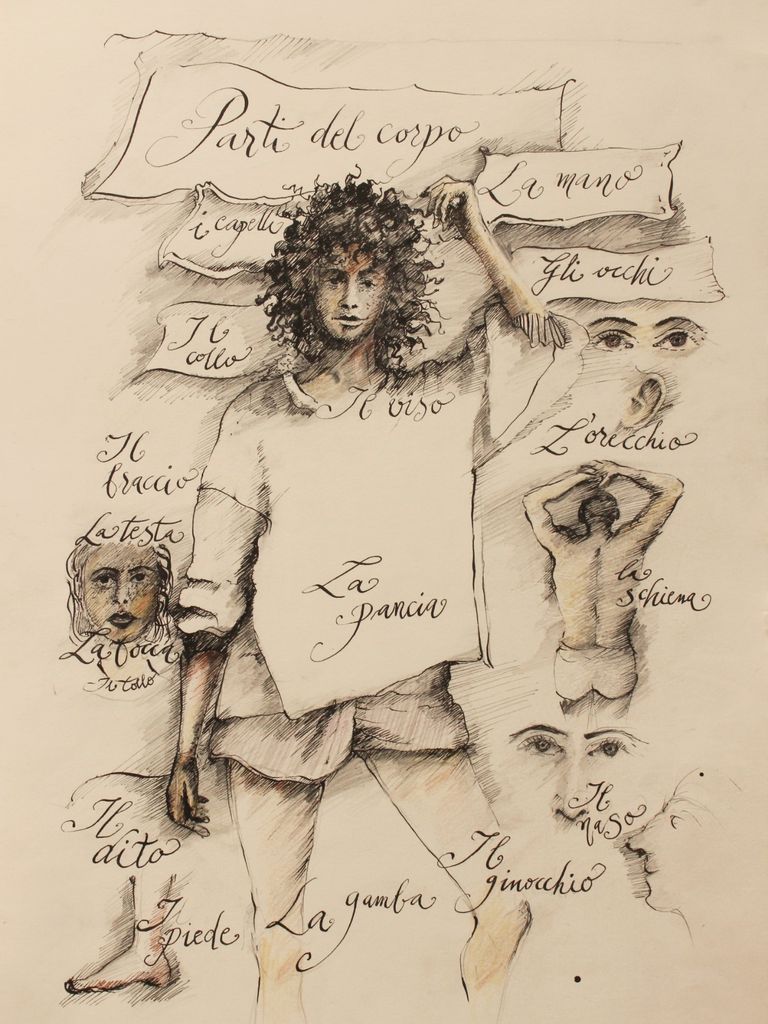 Parti del corpo
La mano
i capelli
Gli occhi
Il
collo
Il viso
L'orecchio
Il
braccio
La testa
La
pancia
la
schiena
La bocca
Il collo
Il
naso
Il
dito
Il
ginocchio
La gamba
I
piede